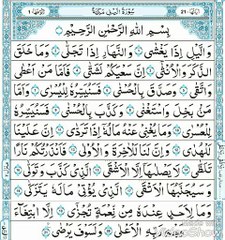 سُورَةُ الَّيْلِ مَكِّيَّةٌ
بِسْمِ اللَّهِ الرَّحْمَٰنِ الرَّحِيمِ
وَالَّيْلِ إِذَا يَغْشَىٰ وَالنَّهَارِ إِذَا تَجَلَّىٰ وَمَا خَلَقَ
الذَّكَرَ وَالْأُنْثَىٰ إِنَّ سَعْيَكُمْ لَشَتَّىٰ فَأَمَّا مَنْ أَعْطَىٰ
وَاتَّقَىٰ وَصَدَّقَ بِالْحُسْنَىٰ فَسَنُيَسِّرُهُ لِلْيُسْرَىٰ وَأَمَّا
مَنْ بَخِلَ وَاسْتَغْنَىٰ وَكَذَّبَ بِالْحُسْنَىٰ فَسَنُيَسِّرُهُ
لِلْعُسْرَىٰ وَمَا يُغْنِي عَنْهُ مَالُهُ إِذَا تَرَدَّىٰ إِنَّ عَلَيْنَا
لَلْهُدَىٰ وَإِنَّ لَنَا لَلْآخِرَةَ وَالْأُولَىٰ فَأَنْذَرْتُكُمْ نَارًا
تَلَظَّىٰ لَا يَصْلَاهَا إِلَّا الْأَشْقَى الَّذِي كَذَّبَ وَتَوَلَّىٰ
وَسَيُجَنَّبُهَا الْأَتْقَى الَّذِي يُؤْتِي مَالَهُ يَتَزَكَّىٰ
وَمَا لِأَحَدٍ عِنْدَهُ مِنْ نِعْمَةٍ تُجْزَىٰ إِلَّا ابْتِغَاءَ
وَجْهِ رَبِّهِ الْأَعْلَىٰ وَلَسَوْفَ يَرْضَىٰ